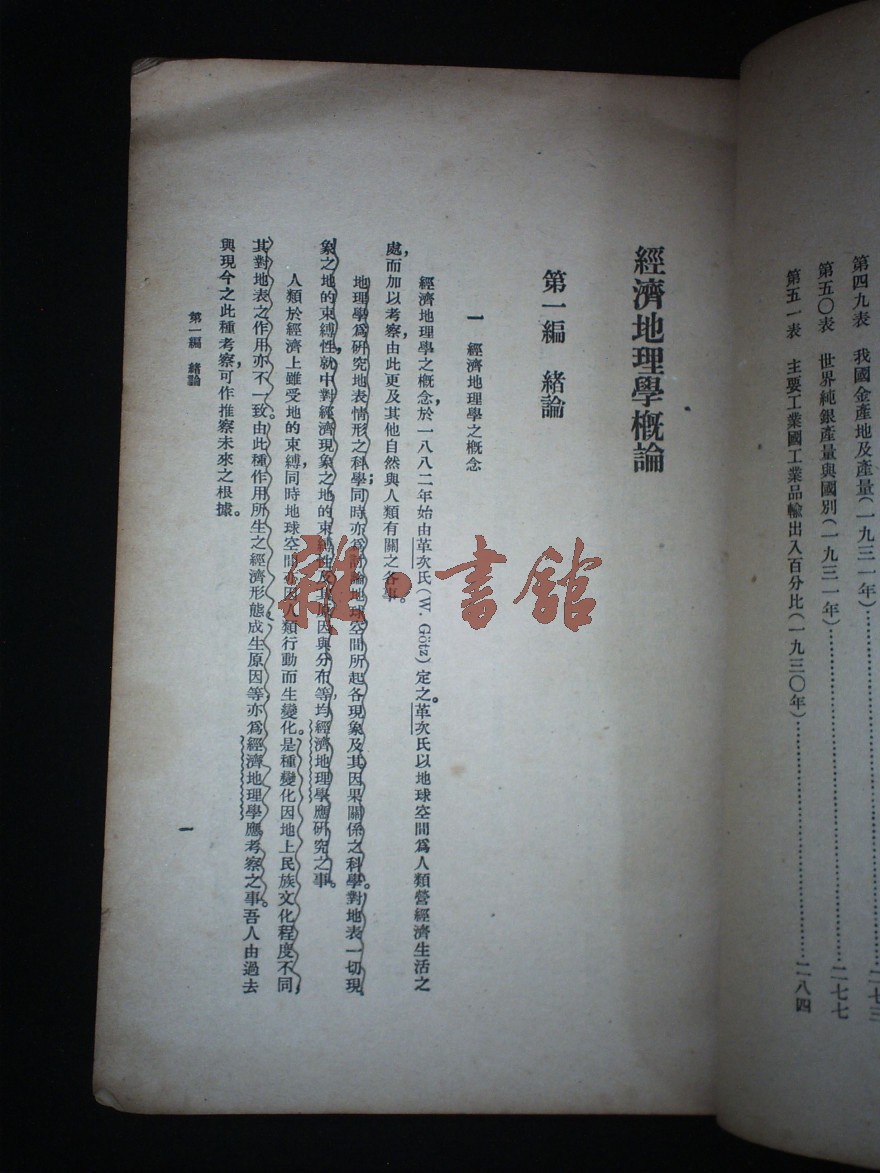 第四九表 我國金產地及產量(一九三一年)……………………二七三
第五〇表 世界純銀產量與國別(一九三一年)……………………二七七
第五一表 主要工業國工業品輸出入百分比(一九三〇年)……………………二八四
經濟地理學概論
第一編 緒論
一 經濟地理學之概念
經濟地理學之概念,於一八八二年始由革次氏(W. Götz)定之。革次氏以地球空間爲人類營經濟生活之
處,而加以考察,由此更及其他自然與人類有關之各事。
地理學爲研究地表情形之科學;同時亦爲討論地球空間所起各現象及其因果關係之科學。對地表一切現
象之地的束縛性,就中對經濟現象之地的束縛性及其原因與分布等,均經濟地理學應研究之事。
人類於經濟上雖受地的束縛,同時地球空間亦因人類行動而生變化。是種變化因地上民族文化程度不同,
其對地表之作用亦不一致。由此種作用所生之經濟形態成生原因等,亦爲經濟地理學應考察之事。吾人由過去
與現今之此種考察,可作推察未來之根據。
第一編 緒論
一
雜·書館